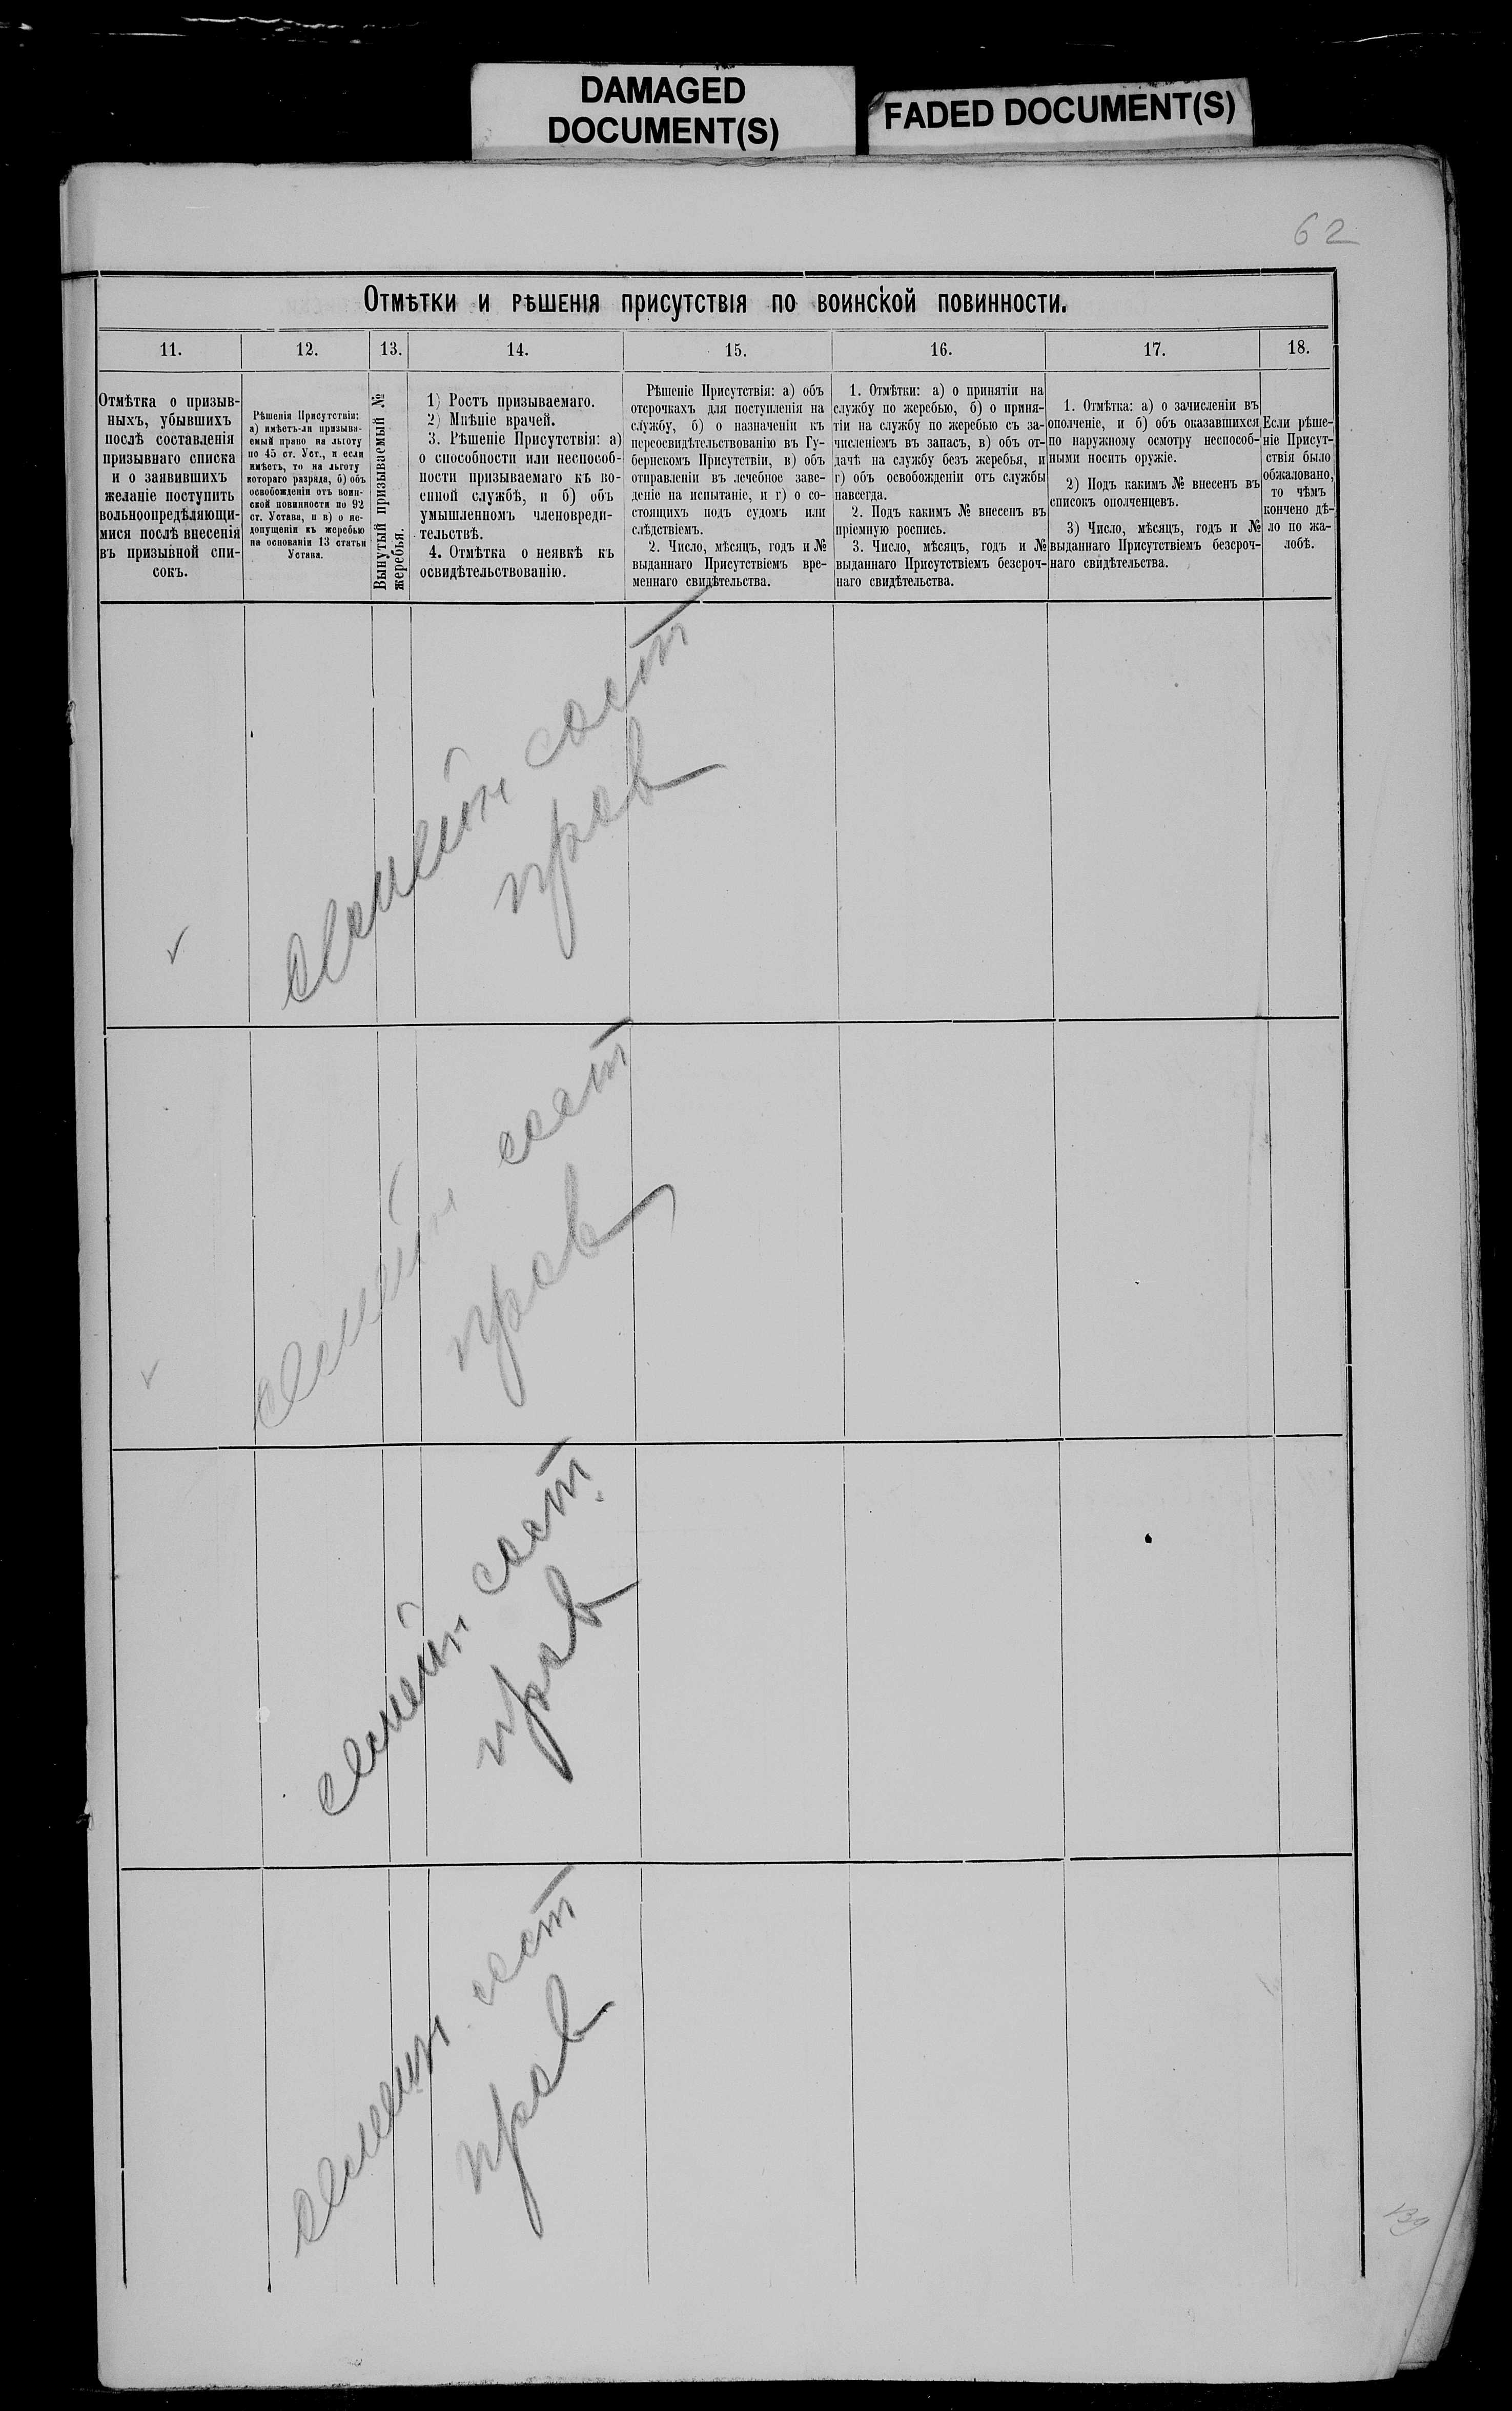 DAMAGED
DOCUMENT(S)
FADED DOCUMENT(S)
62
Отмѣтки и рѣшенія присутствія по воинской повинности.
11.
12.
13.
14.
15.
16.
17.
18.
Отмѣтка о призыв-
ныхъ, убывшихъ
послѣ составленія
призывнаго списка
и о заявившихъ
желаніе поступить
вольноопредѣляющи-
мися послѣ внесенія
въ призывной спи-
сокъ.
Рѣшенія Присутствія:
а) имѣетъ-ли призыва-
емый право на льготу
по 45 ст. Уст., и если
имѣетъ, то на льготу
котораго разряда, б) объ
освобожденіи отъ воин-
ской повинности по 92
ст. Устава, и в) о не-
допущеніи къ жеребью
на основаніи 13 статьи
Устава.
Вынутый призываемый №
жеребья.
1) Ростъ призываемаго.
2) Мнѣніе врачей.
3. Рѣшеніе Присутствія: а)
о способности или неспособ-
ности призываемаго къ во-
енной службѣ, и б) объ
умышленномъ членовреди-
тельствѣ.
4. Отмѣтка о неявкѣ къ
освидѣтельствованію.
Рѣшеніе Присутствія: а) объ
отсрочкахъ для поступленія на
службу, б) о назначеніи къ
переосвидѣтельствованію въ Гу-
бернскомъ Присутствіи, в) объ
отправленіи въ лечебное заве-
деніе на испытаніе, и г) о со-
стоящихъ подъ судомъ или
слѣдствіемъ.
2. Число, мѣсяцъ, годъ и №
выданнаго Присутствіемъ вре-
меннаго свидѣтельства.
1. Отмѣтки: а) о принятіи на
службу по жеребью, б) о приня-
тіи на службу по жеребью съ за-
численіемъ въ запасъ, в) объ от-
дачѣ на службу безъ жеребья, и
г) объ освобожденіи отъ службы
навсегда.
2. Подъ какимъ № внесенъ въ
пріемную роспись.
3. Число, мѣсяцъ, годъ и №
выданнаго Присутствіемъ безсроч-
наго свидѣтельства.
1. Отмѣтка: а) о зачисленіи въ
ополченіе, и б) объ оказавшихся
по наружному осмотру неспособ-
ными носить оружіе.
2) Подъ какимъ № внесенъ въ
списокъ ополченцевъ.
3) Число, мѣсяцъ, годъ и №
выданнаго Присутствіемъ безсроч-
наго свидѣтельства.
Если рѣше-
ніе Присут-
ствія было
обжаловано,
то чѣмъ
кончено дѣ-
ло по жа-
лобѣ.
семейн сост
пров
семейн сост
пров
семейн сост
пров
семейн сост
пров